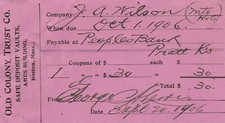 OLD COLONY TRUST CO.
SAFE DEPOSIT VAULTS,
AMES BUILDING,
Boston, Mass.
Company, J. A. Wilson
Due Oct 1, 1906.
Payable at Peoples Bank
Pratt Ks
Coupons of $ each, $
1 - 30 30
George
Date, Sept 20, 1906